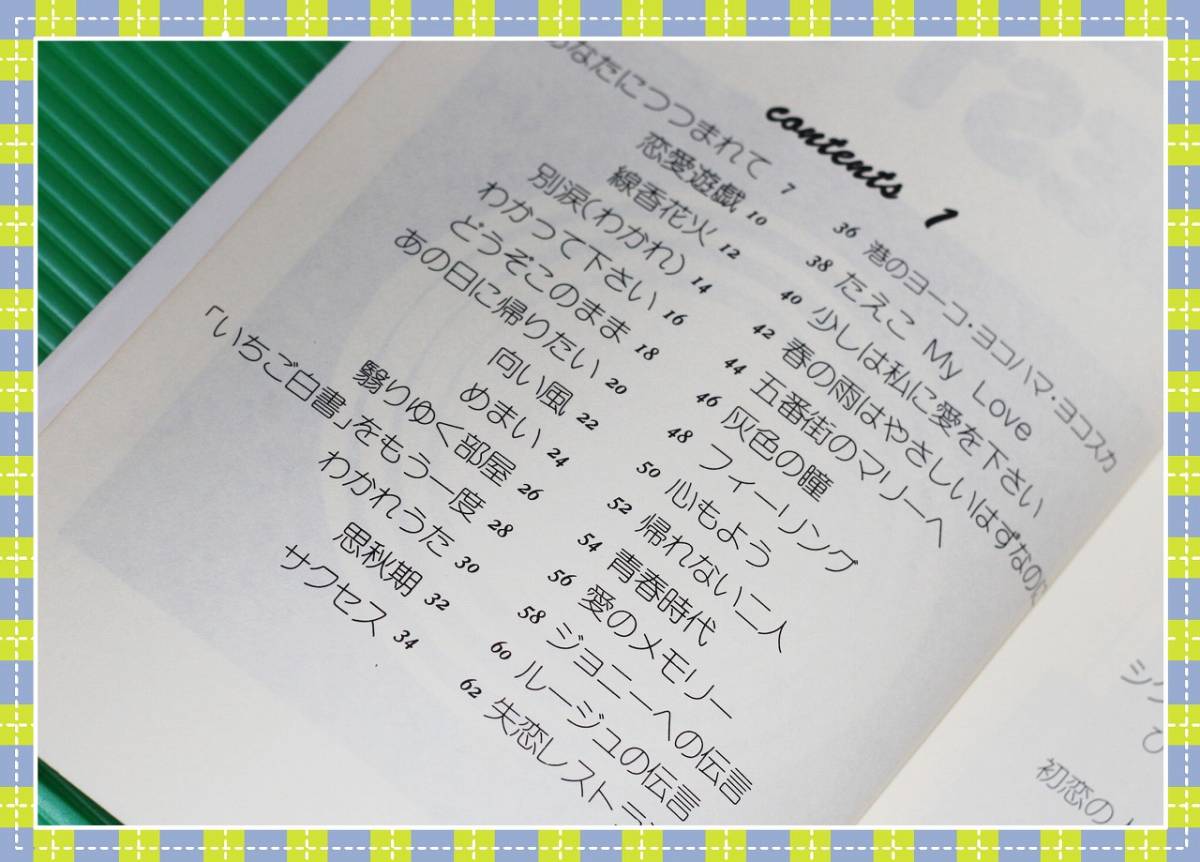 contents 1
なたにつつまれて 7
恋愛遊戯 10
線香花火 12
別涙(わかれ) 14
わかって下さい 16
どうぞこのまま 18
あの日に帰りたい 20
向い風 22
めまい 24
翳りゆく部屋 26
「いちご白書」をもう一度 28
わかれうた 30
思秋期 32
サクセス 34
36 港のヨーコ・ヨコハマ・ヨコスカ
38 たえこ My Love
40 少しは私に愛を下さい
42 春の雨はやさしいはずなの
44 五番街のマリーへ
46 灰色の瞳
48 フィーリング
50 心もよう
52 帰れない二人
54 青春時代
56 愛のメモリー
58 ジョニーへの伝言
60 ルージュの伝言
62 失恋レストラン
シク
ひ
初恋の